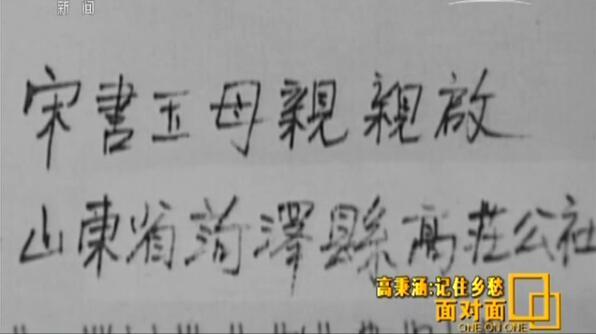 新闻
宋書玉母親親啟
山東省菏澤縣高莊公社
高秉涵:记住乡愁
面对面
ONE ON ONE